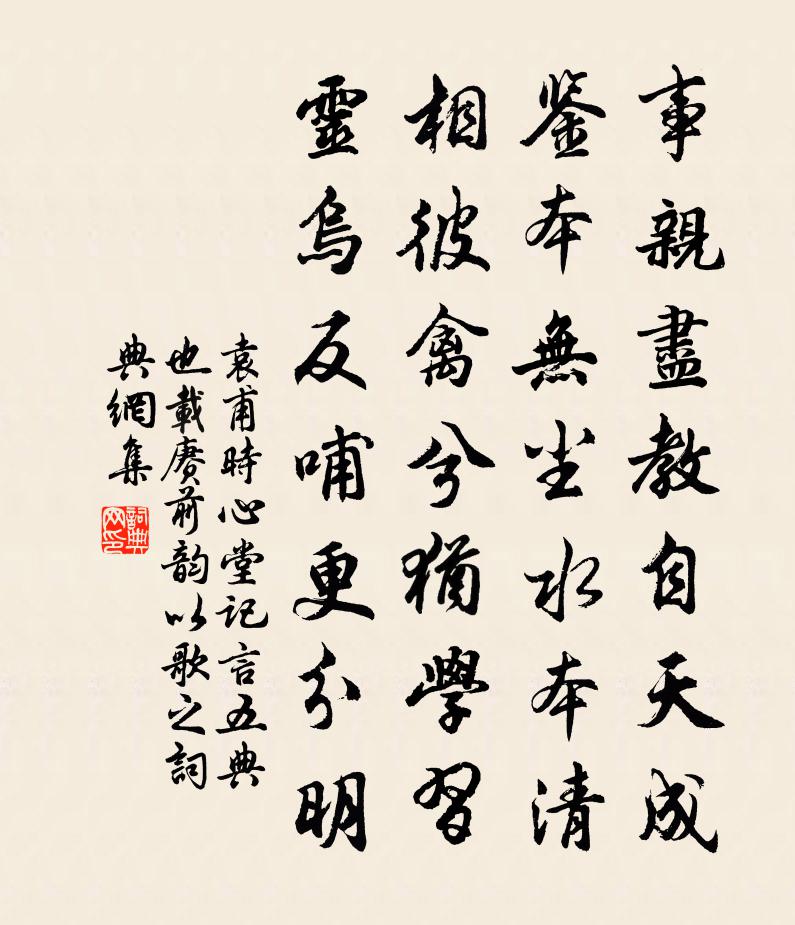 事親盡教自天成
鉴本無尘水本清
相彼禽兮猶學習
靈烏反哺更分明
袁甫時心堂記言五典
也載赓前韵以歌之詞
典網集
詞典
网印